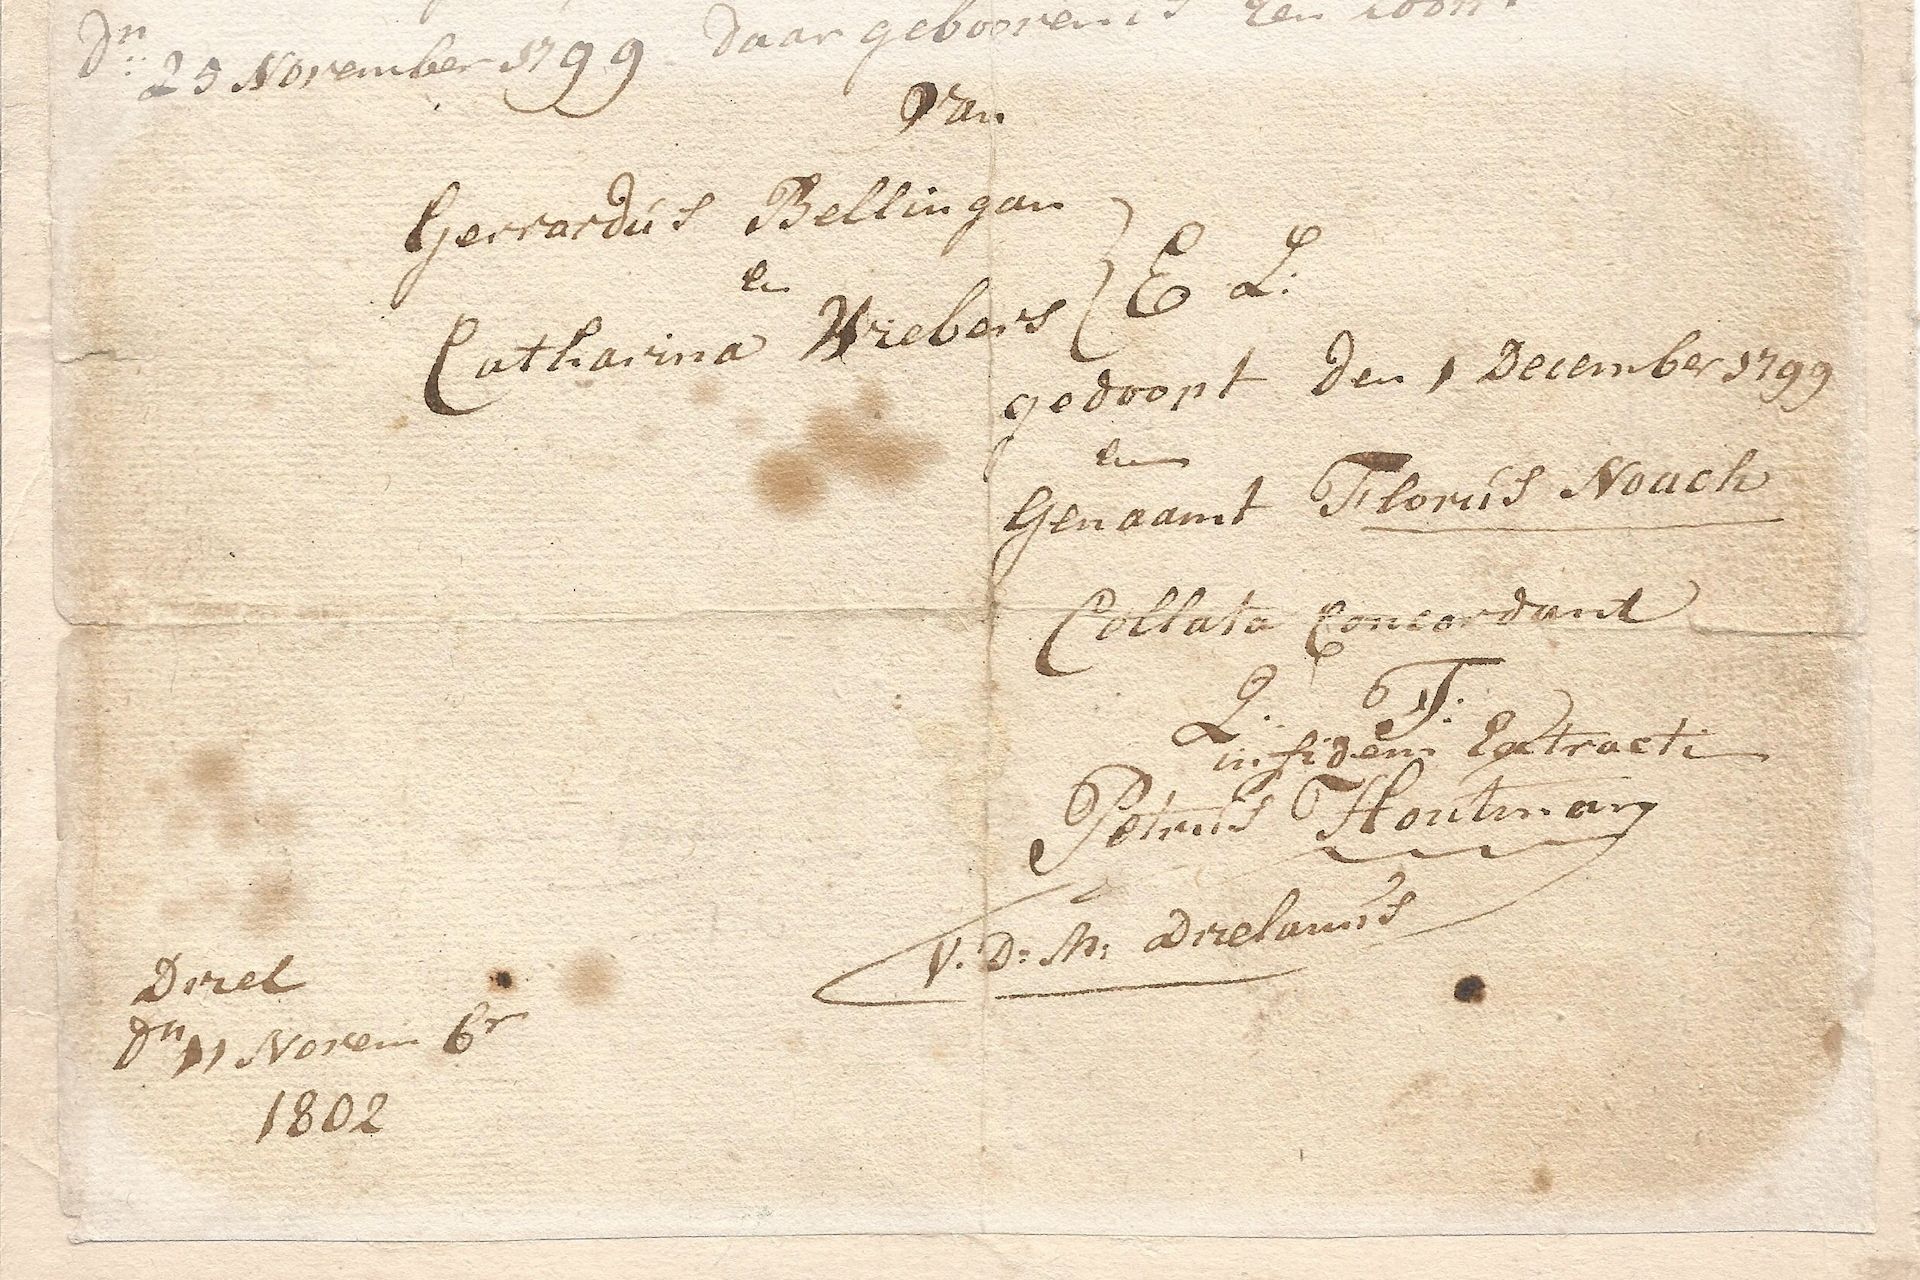 Dn: 25 November 1799 daar gebooren is een soon.
Van
Gerrardús Bellingan
en
Catharina Wrebers } E L:
gedoopt den 1 December 1799
en
Genaamt Florús Noach
Collata Concordant
Q: T:
in fidem Extracti
Petrús Houtman
V: D: M: Drielanús
Driel
dn 11 Novem br
1802